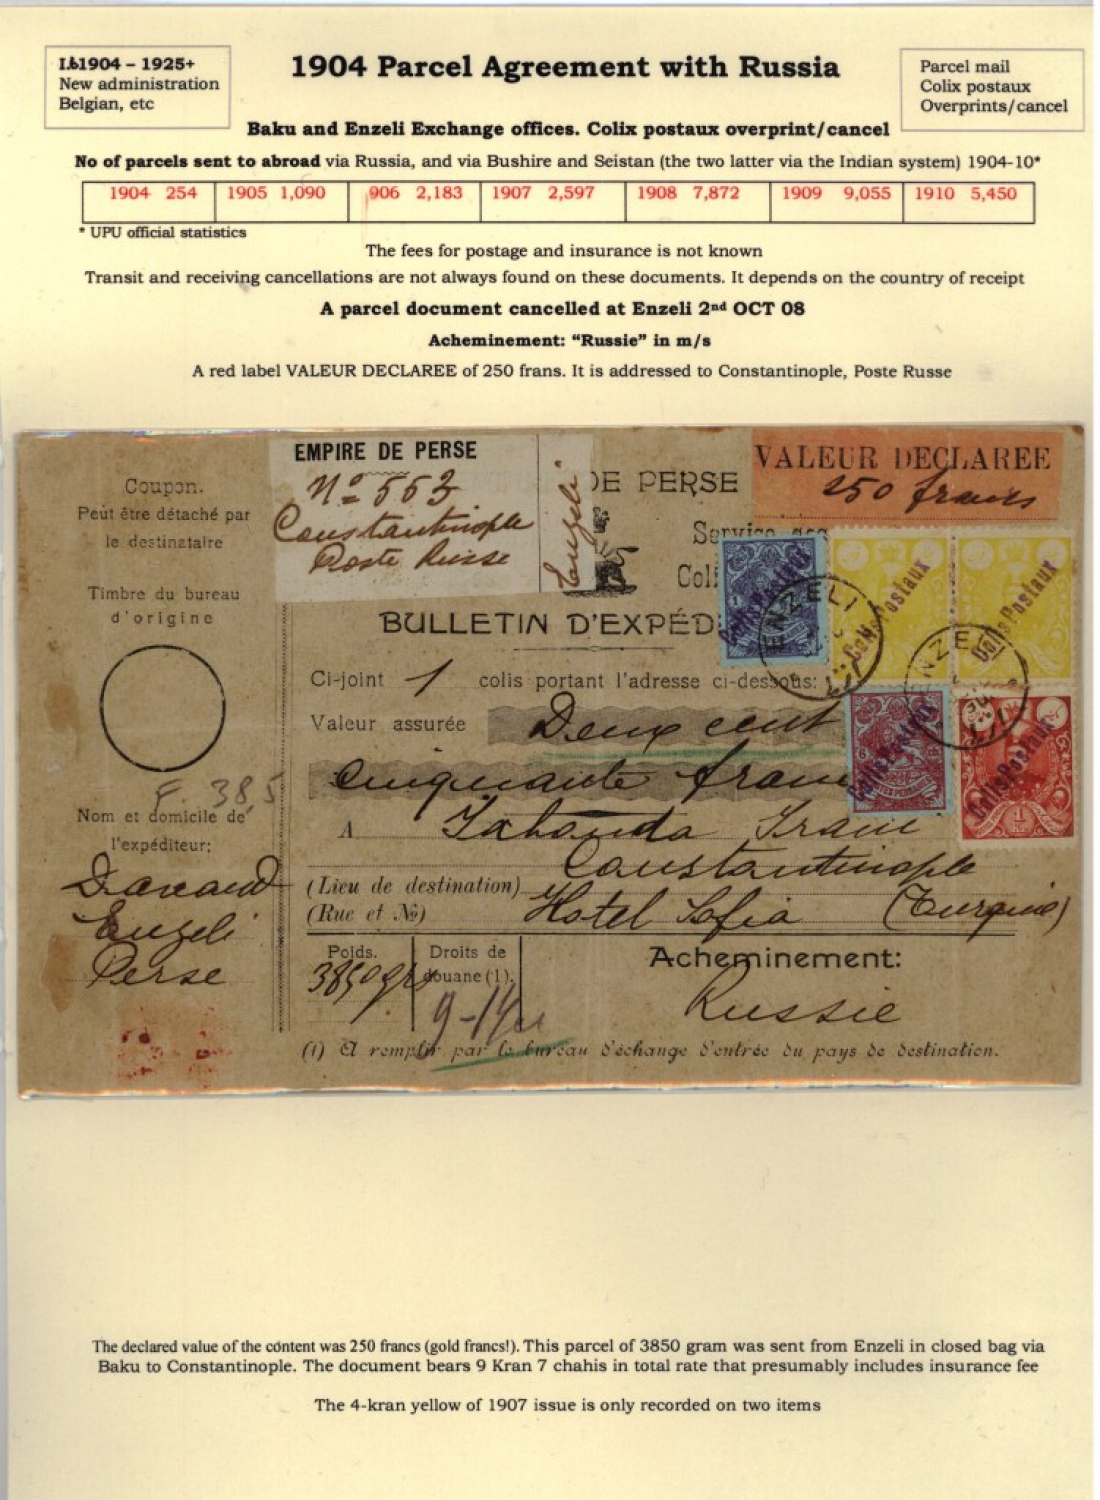 I.b1904 – 1925+
New administration
Belgian, etc
1904 Parcel Agreement with Russia
Parcel mail
Colix postaux
Overprints/cancel
Baku and Enzeli Exchange offices. Colix postaux overprint/cancel
No of parcels sent to abroad via Russia, and via Bushire and Seistan (the two latter via the Indian system) 1904-10*
1904 254 1905 1,090 906 2,183 1907 2,597 1908 7,872 1909 9,055 1910 5,450
* UPU official statistics
The fees for postage and insurance is not known
Transit and receiving cancellations are not always found on these documents. It depends on the country of receipt
A parcel document cancelled at Enzeli 2nd OCT 08
Acheminement: “Russie” in m/s
A red label VALEUR DECLAREE of 250 frans. It is addressed to Constantinople, Poste Russe
EMPIRE DE PERSE
Nº 553
Constantinople
Poste Russe
Enzeli
DE PERSE
Service des
Coli
VALEUR DECLAREE
250 francs
Coupon.
Peut être détaché par
le destinataire
Timbre du bureau
d'origine
BULLETIN D'EXPÉD
Colis Postaux
Colis Postaux
Colis Postaux
Colis Postaux
Colis Postaux
ENZELI
ENZELI
Ci-joint 1 colis portant l'adresse ci-dessous:
Valeur assurée Deux cent
cinquante francs
A
Constantinople
(Lieu de destination)
(Rue et No) Hotel Sofia (Turquie)
F. 38,5
Nom et domicile de
l'expéditeur:
Enzeli
Perse
Poids.
3850 grs
Droits de
douane (1).
Acheminement:
Russie
(1) A remplir par le bureau d'échange d'entrée du pays de destination.
The declared value of the content was 250 francs (gold francs!). This parcel of 3850 gram was sent from Enzeli in closed bag via
Baku to Constantinople. The document bears 9 Kran 7 chahis in total rate that presumably includes insurance fee
The 4-kran yellow of 1907 issue is only recorded on two items